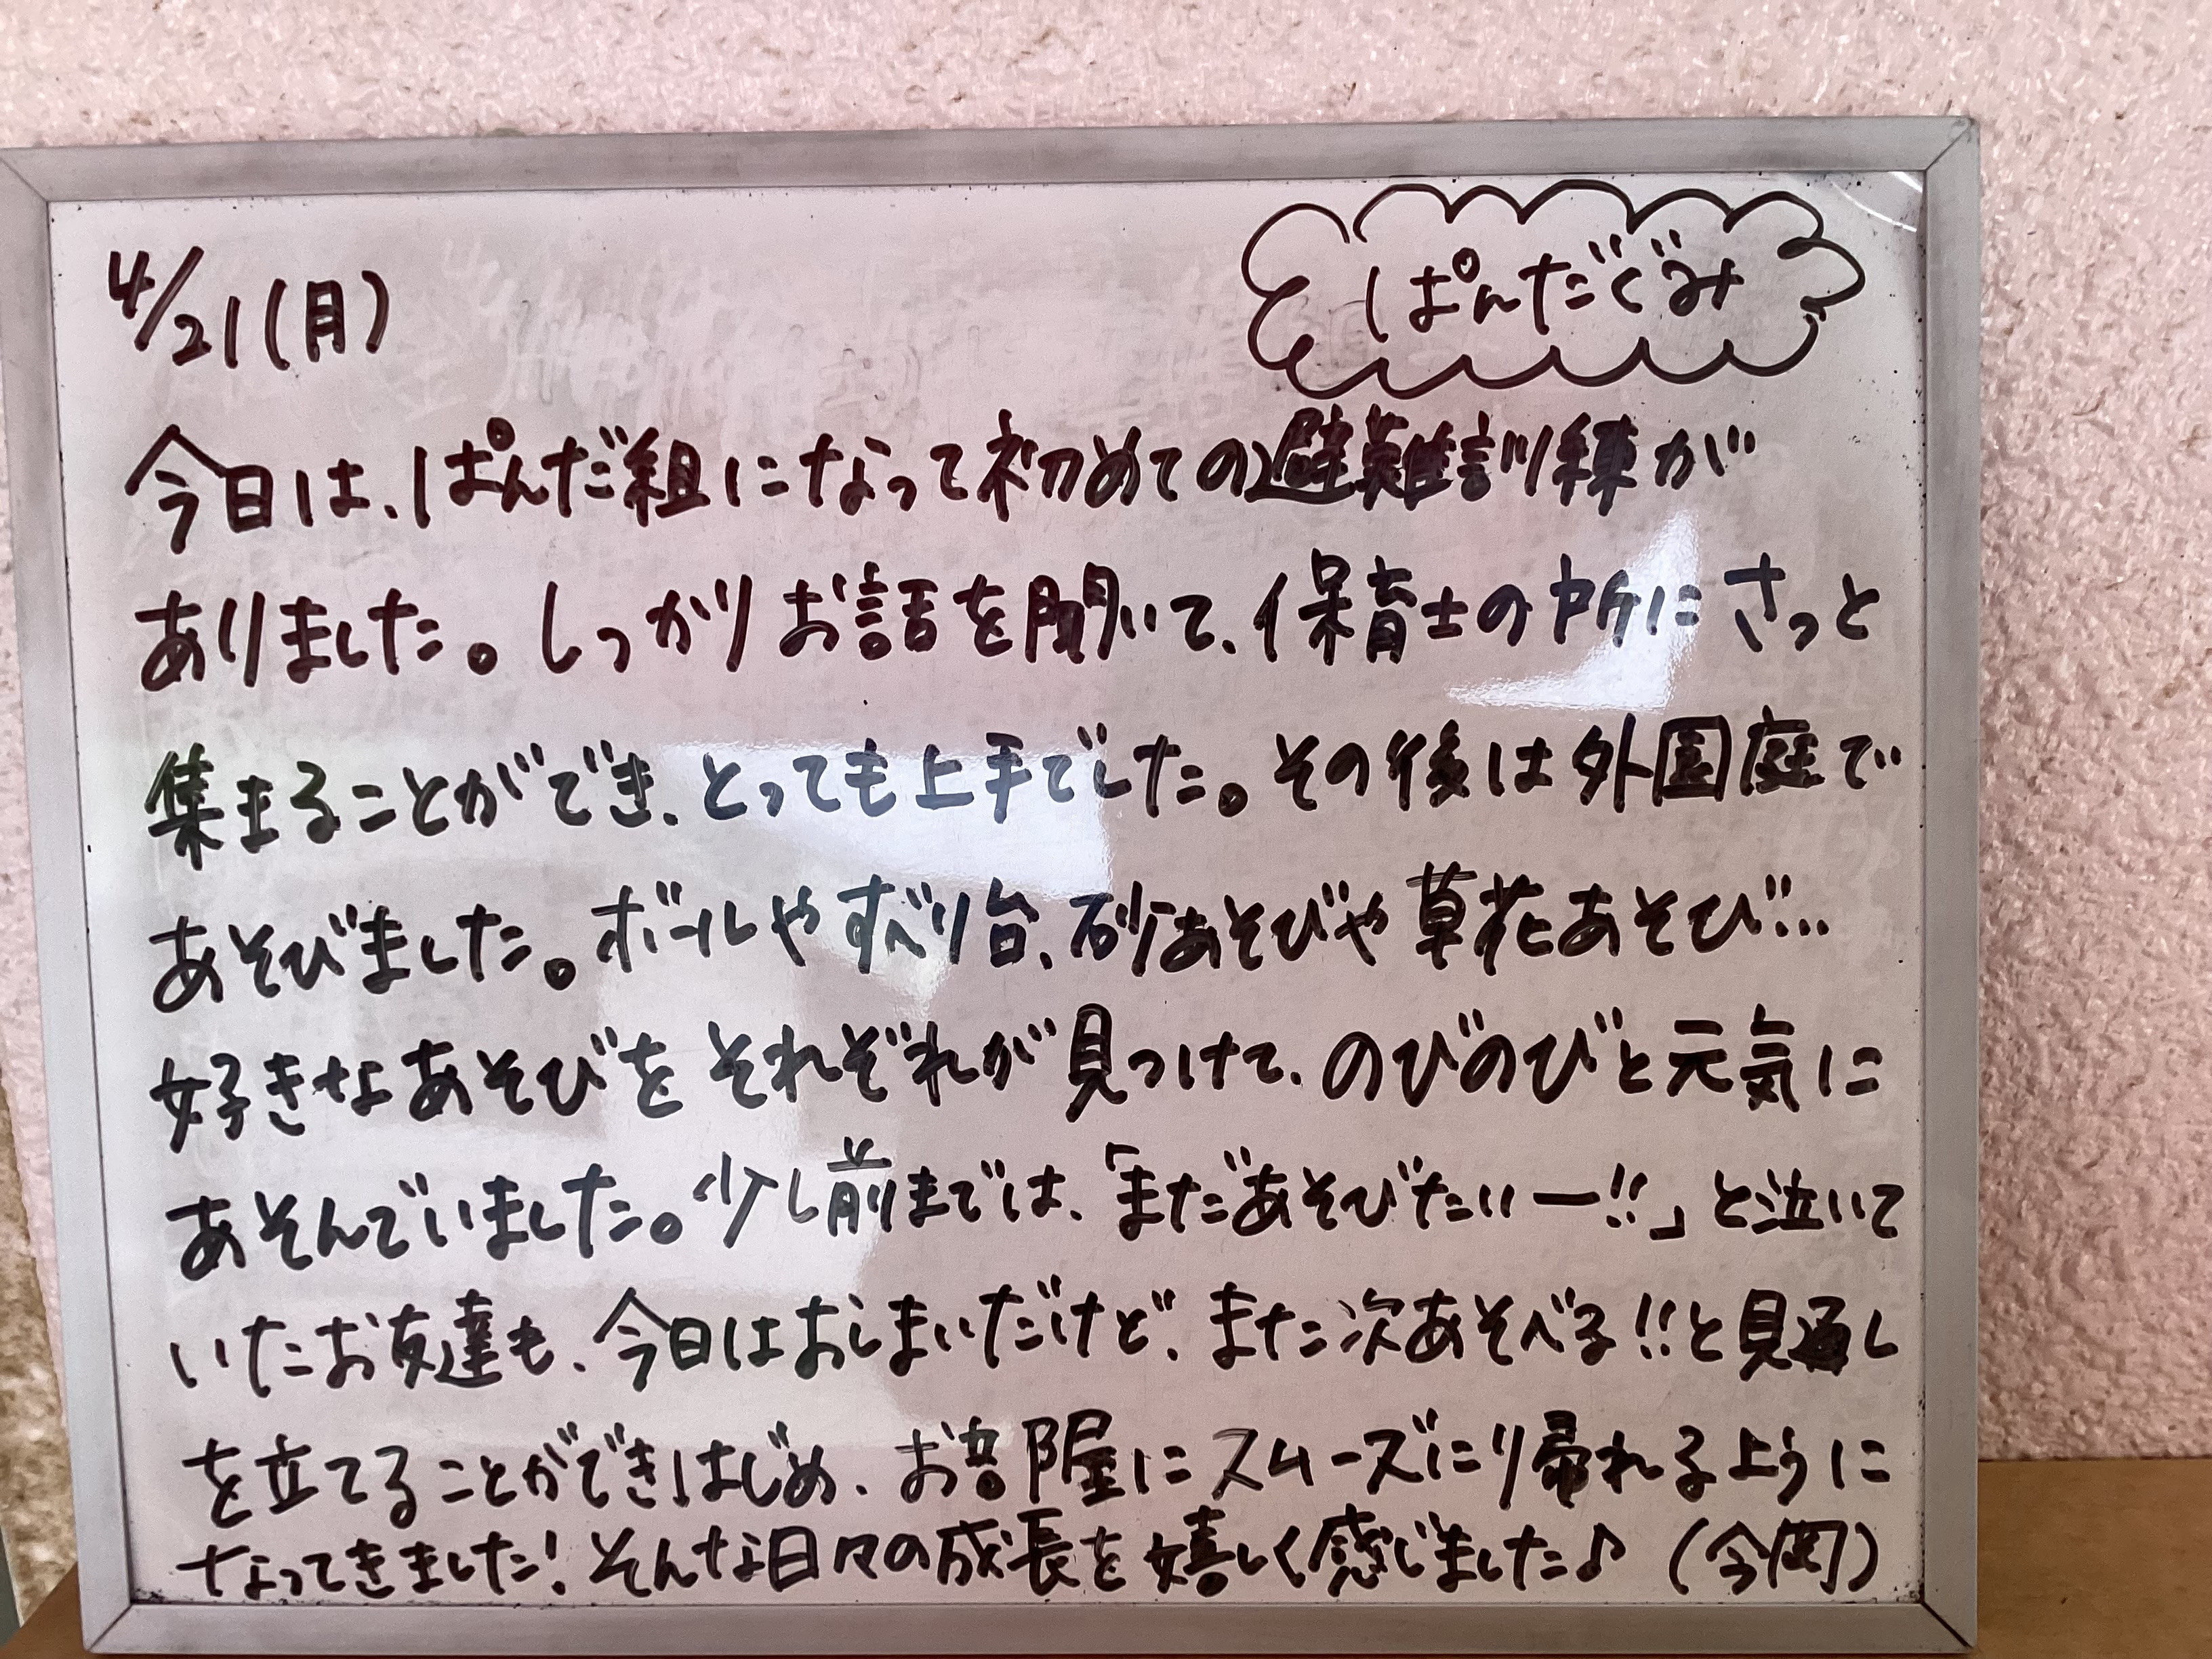 4/21(月)
ぱんだぐみ
今日は、ぱんだ組になって初めての避難訓練が
ありました。しっかりお話を聞いて、保育士の所にさっと
集まることができ、とっても上手でした。その後は外園庭で
あそびました。ボールやすべり台、砂あそびや草花あそび…
好きなあそびをそれぞれが見つけて、のびのびと元気に
あそんでいました。少し前までは、「まだあそびたいー!!」と泣いて
いたお友達も、今日はおしまいだけど、また次あそべる!!と見通し
を立てることができはじめ、お部屋にスムーズに帰れるように
なってきました!そんな日々の成長を嬉しく感じました♪ (今岡)